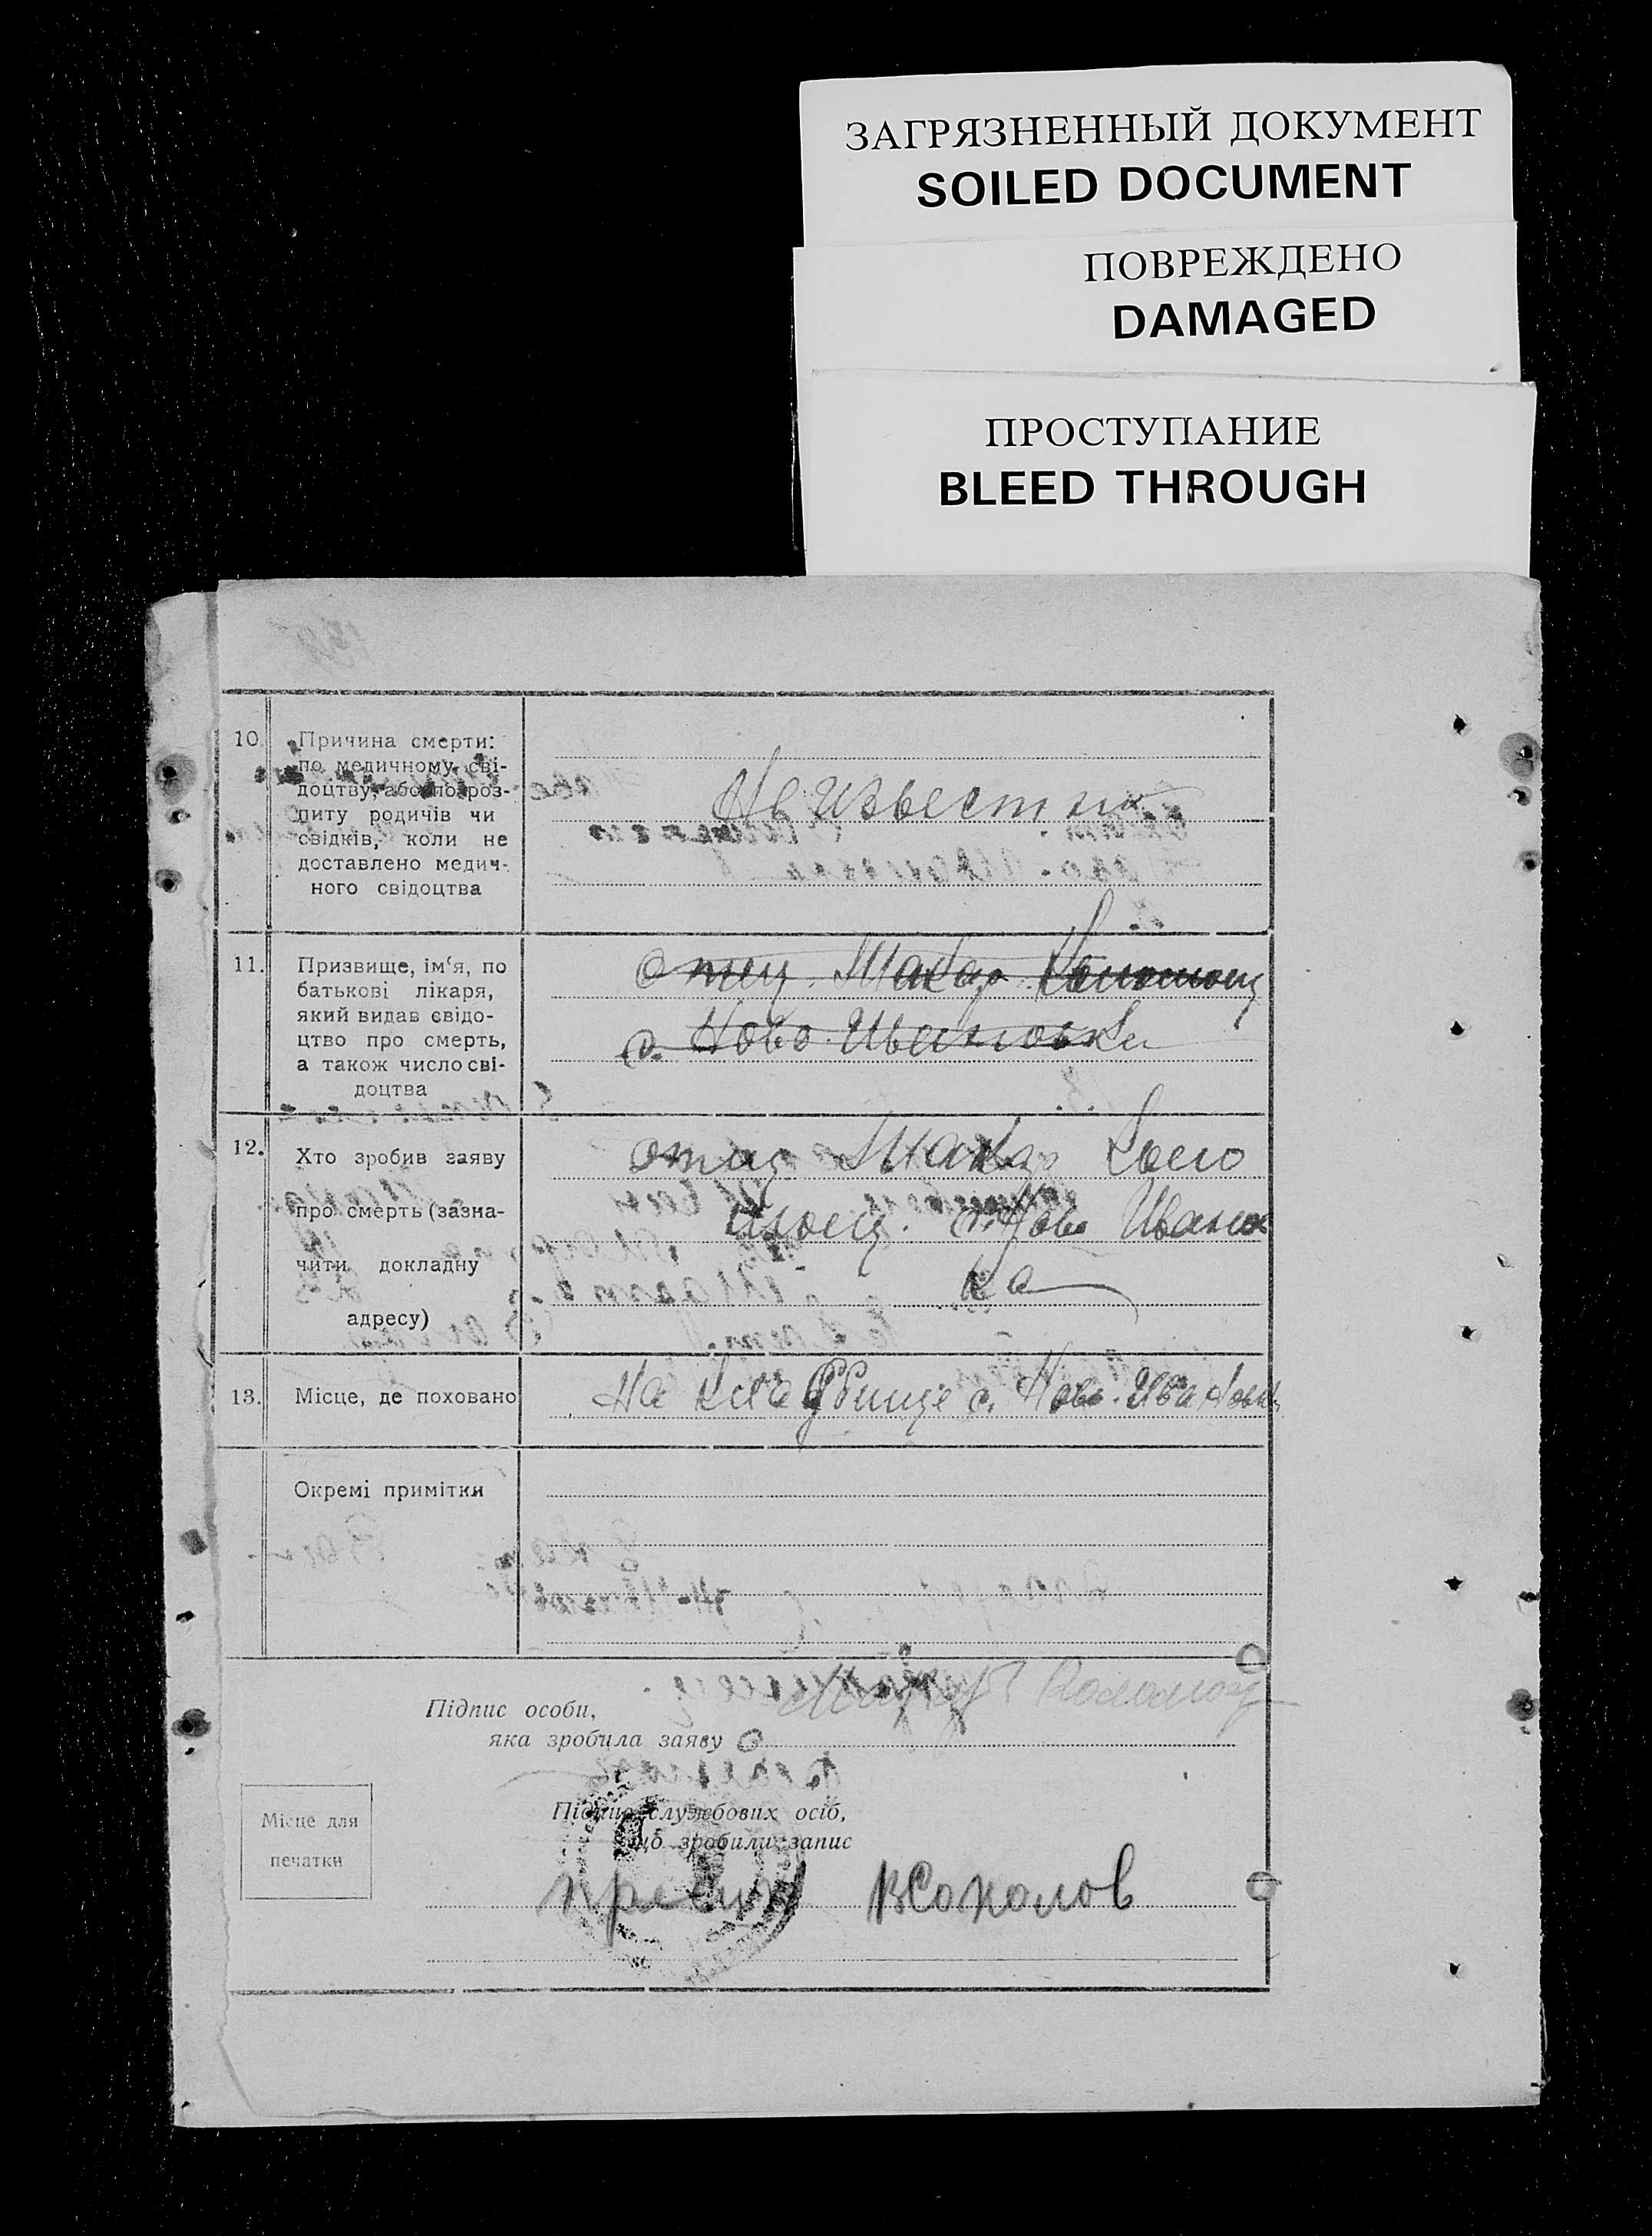 ЗАГРЯЗНЕННЫЙ ДОКУМЕНТ
SOILED DOCUMENT
ПОВРЕЖДЕНО
DAMAGED
ПРОСТУПАНИЕ
BLEED THROUGH
10. Причина смерти:
по медичному сві-
доцтву, або по роз-
питу родичів чи
свідків, коли не
доставлено медич-
ного свідоцтва
Не известно
11. Призвище, ім'я, по
батькові лікаря,
який видав свідо-
цтво про смерть,
а також число сві-
доцтва
отец Макар
с. Ново Ивановка
12. Хто зробив заяву
про смерть (зазна-
чити докладну
адресу)
отец Макар
с. Ново Иванов
ка
13. Місце, де поховано
На кладбище с. Ново-Ивановк
Окремі примітки
Підпис особи,
яка зробила заяву
Місце для
печатки
Підпис службових осіб,
що зробили запис
ВСоколов